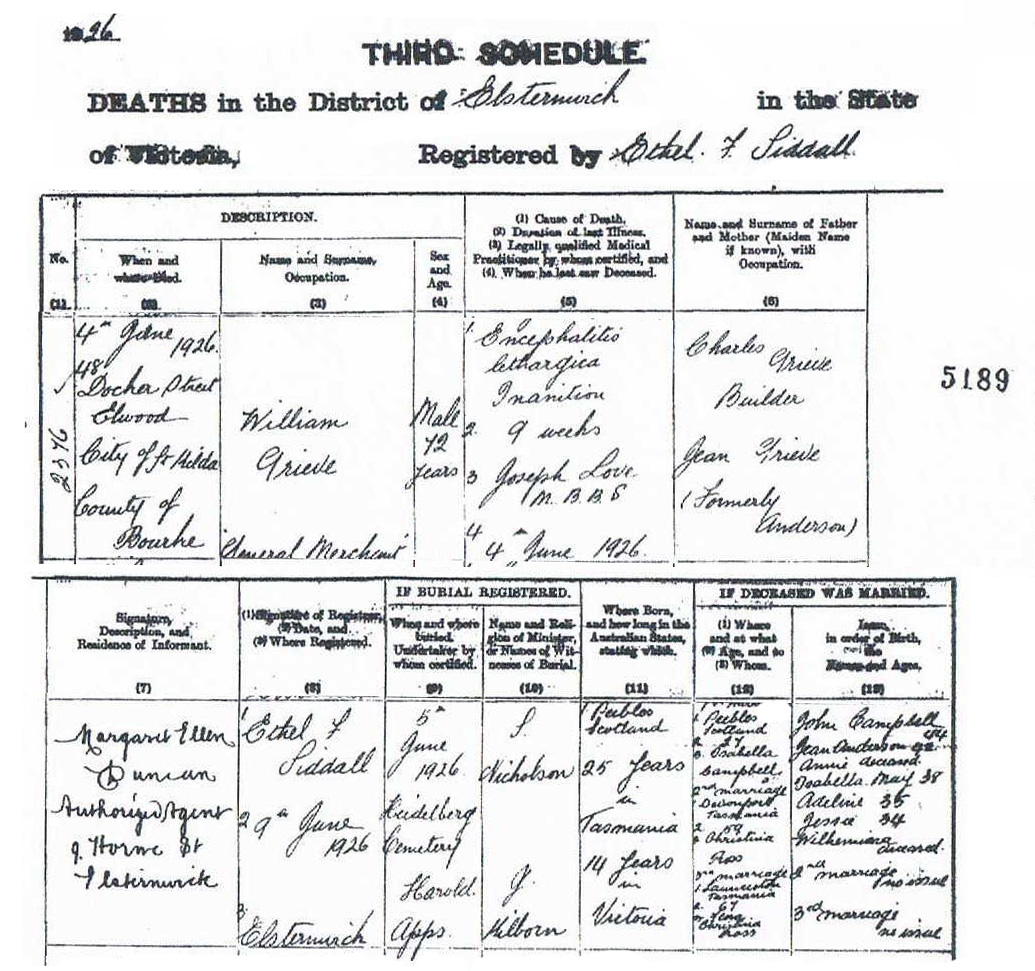 1926
THIRD SCHEDULE.
DEATHS in the District of Elsternwick in the State
of Victoria, Registered by Ethel. F Siddall
No.
(1)
DESCRIPTION.
When and
where Died.
(2)
Name and Surname,
Occupation.
(3)
Sex
and
Age.
(4)
(1) Cause of Death,
(2) Duration of last Illness,
(3) Legally qualified Medical
Practitioner by whom certified, and
(4) When he last saw Deceased.
(5)
Name and Surname of Father
and Mother (Maiden Name
if known), with
Occupation.
(6)
2376
4th June
1926.
48
Docher Street
Elwood
City of St Kilda
County of
Bourke
William
Grieve
General Merchant
Male
72
Years
1 Encephalitis
lethargica
Inanition
2. 9 weeks
3 Joseph Love
M. B. B S
4
4th June 1926.
Charles Grieve
Builder
Jean Grieve
(Formerly
Anderson)
5189
Signature,
Description, and
Residence of Informant.
(7)
(1) Signature of Registrar,
(2) Date, and
(3) Where Registered.
(8)
IF BURIAL REGISTERED.
When and where
buried.
Undertaker by
whom certified.
(9)
Name and Reli-
gion of Minister,
or Names of Wit-
nesses of Burial.
(10)
Where Born,
and how long in the
Australian States,
stating which.
(11)
IF DECEASED WAS MARRIED.
(1) Where
and at what
(2) Age, and to
(3) Whom.
(12)
Issue,
in order of Birth,
the
Names and Ages.
(13)
Margaret Ellen
Duncan
Authorized Agent
9. Horne St
Elsternwick
1 Ethel F
Siddall
2 9th June
1926
3
Elsternwick
5th
June
1926
Heidelberg
Cemetery
Harold.
Apps.
S.
Nicholson
J.
Kilborn
1 Peebles
Scotland
25 Years
in
Tasmania
14 Years
in
Victoria
1 Peebles
Scotland
2 27
3 Isabella
Campbell
2nd marriage
1 Devonport
Tasmania
2 59
3 Christina
Ross
3rd marriage
1 Launceston
Tasmania
2 67
3 Jena
Christina
Ross
John Campbell
44
Jean Anderson 42
Annie deceased.
Isabella May 38
Adeline 35
Jessie 34
Wilhemiena
deceased.
2nd marriage
no issue
3rd marriage
no issue